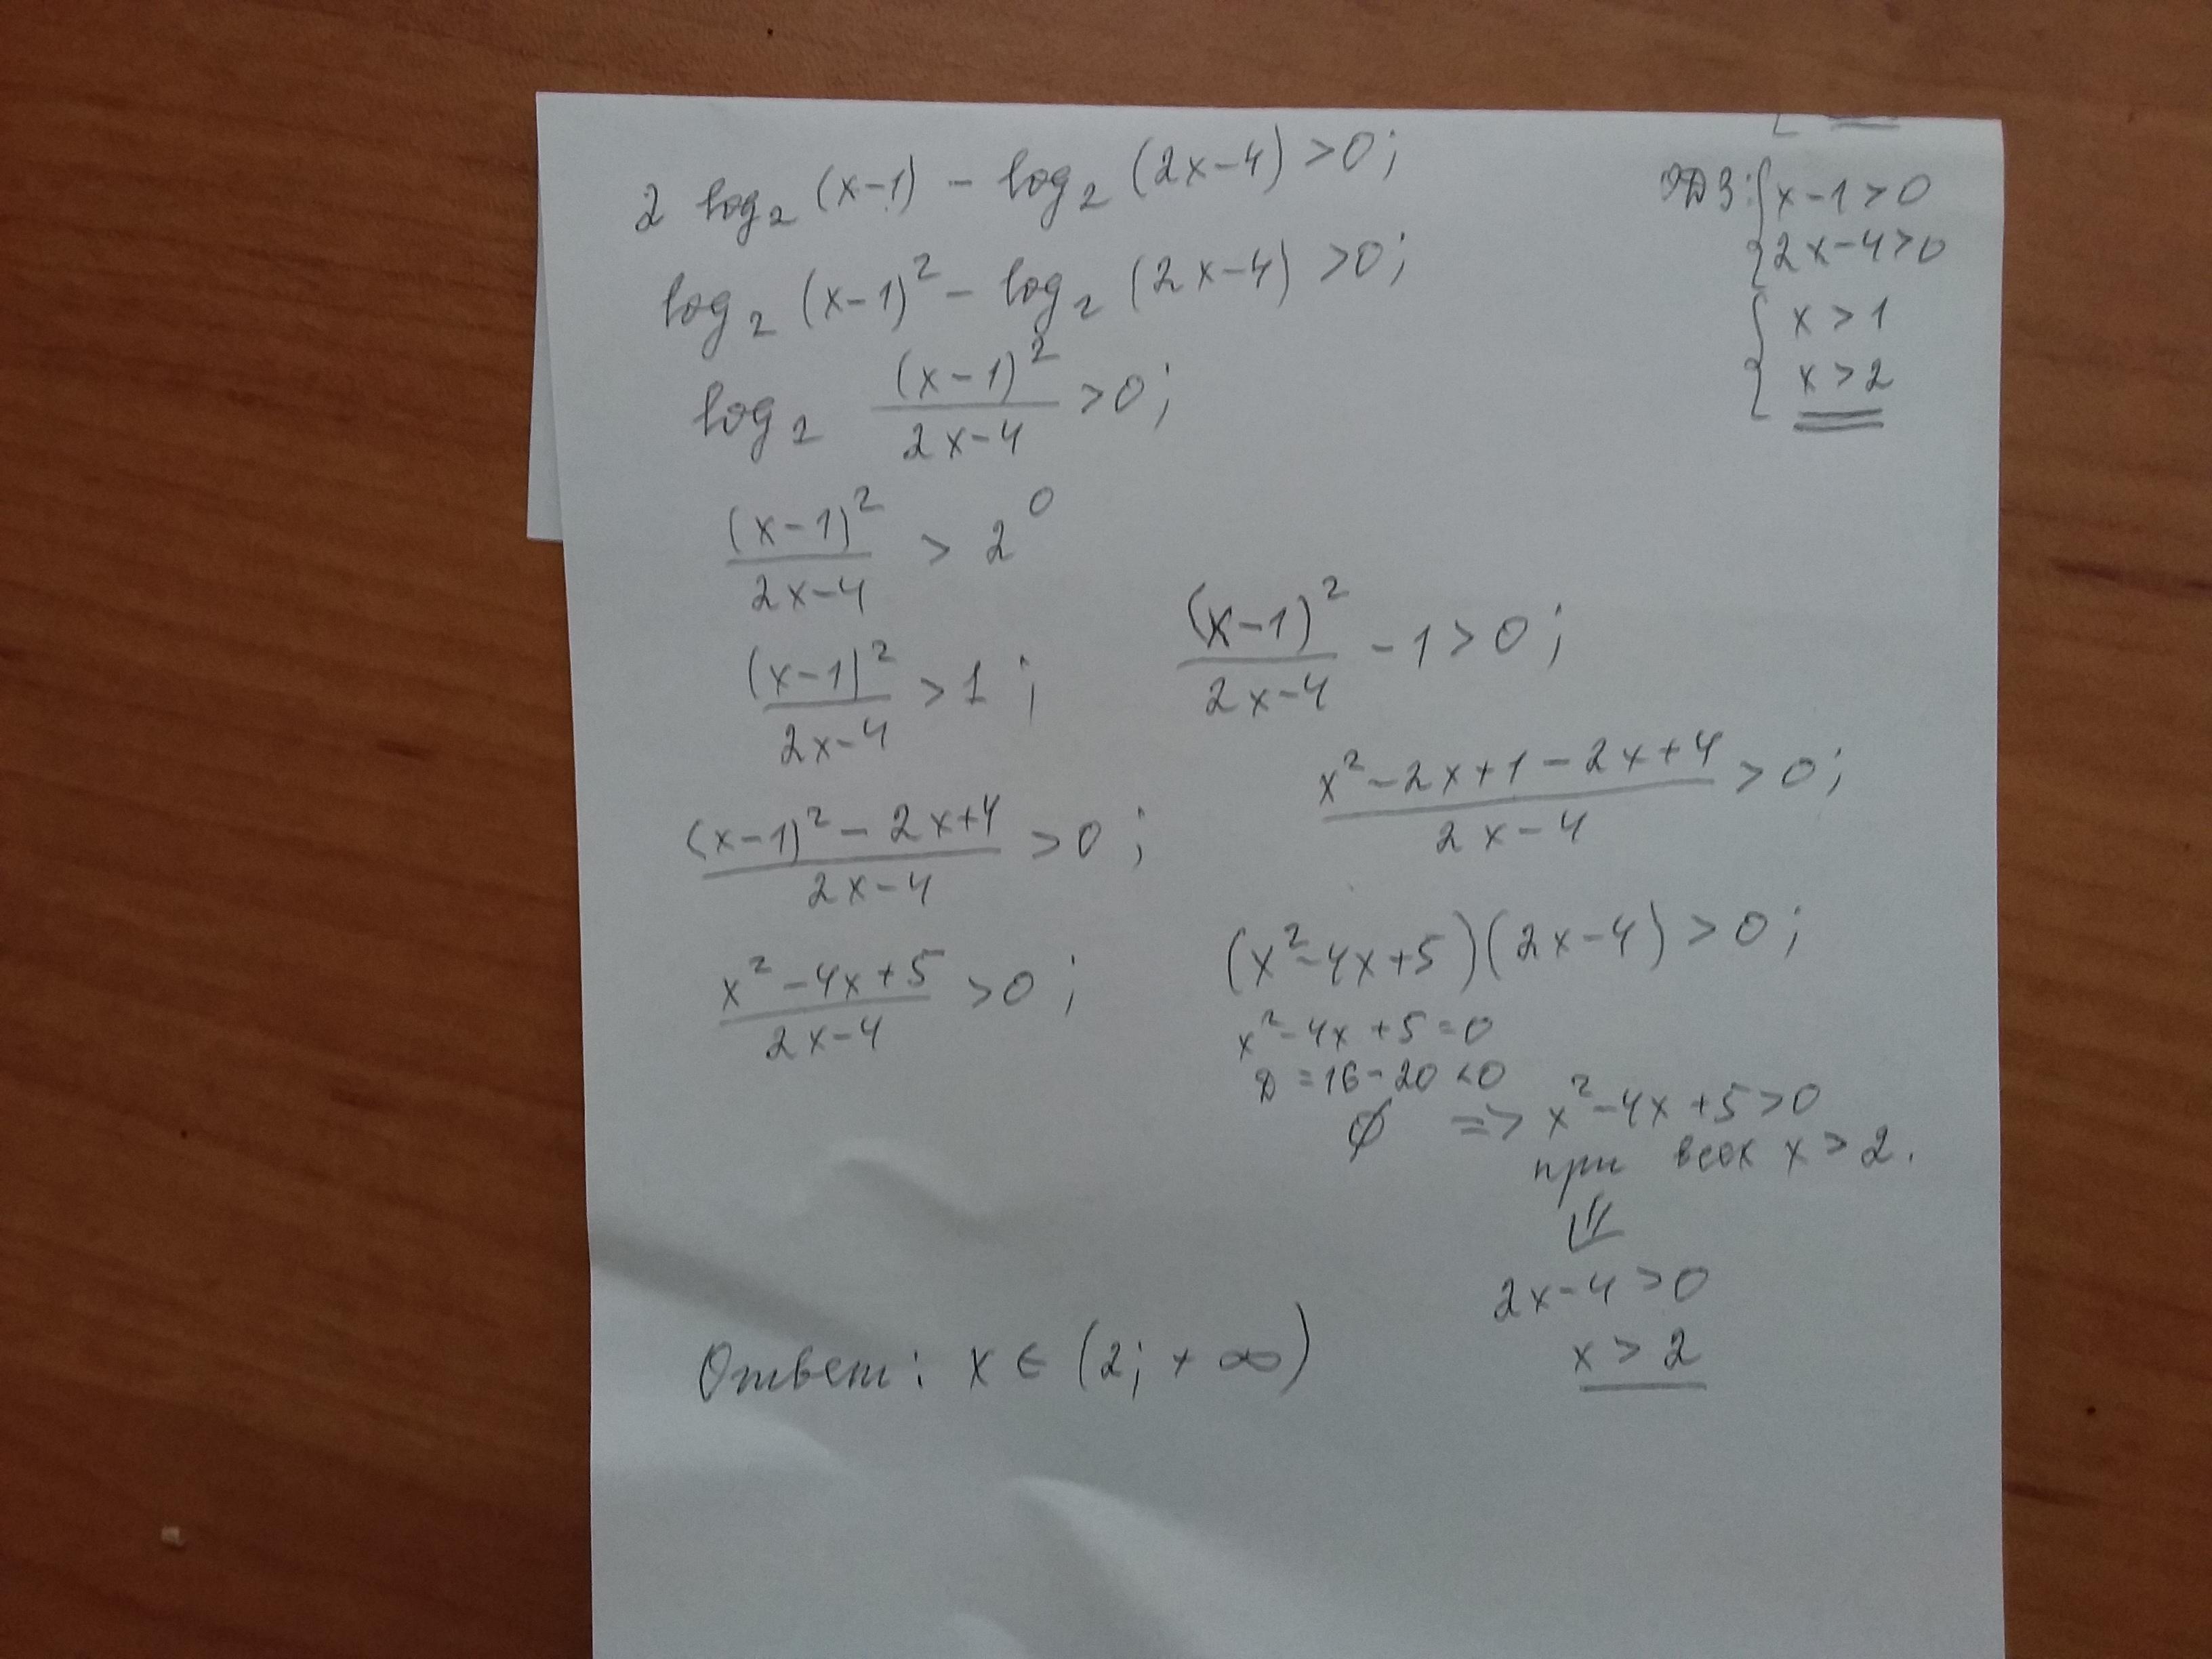 2 log₂ (x-1) - log₂ (2x-4) >0;
ОДЗ: { x-1>0
{ 2x-4>0
log₂ (x-1)² - log₂ (2x-4) >0;
{ x>1
{ x>2
log₂ (x-1)²/(2x-4) >0;
(x-1)²/(2x-4) > 2⁰
(x-1)²/(2x-4) >1; (x-1)²/(2x-4) -1>0;
((x-1)² - 2x+4)/(2x-4) >0; (x²-2x+1-2x+4)/(2x-4) >0;
(x²-4x+5)/(2x-4) >0; (x²-4x+5)(2x-4) >0;
x²-4x+5=0
D=16-20<0
∅ => x²-4x+5>0
при всех x>2.
⇓
2x-4>0
x>2
Ответ: x∈(2;+∞)